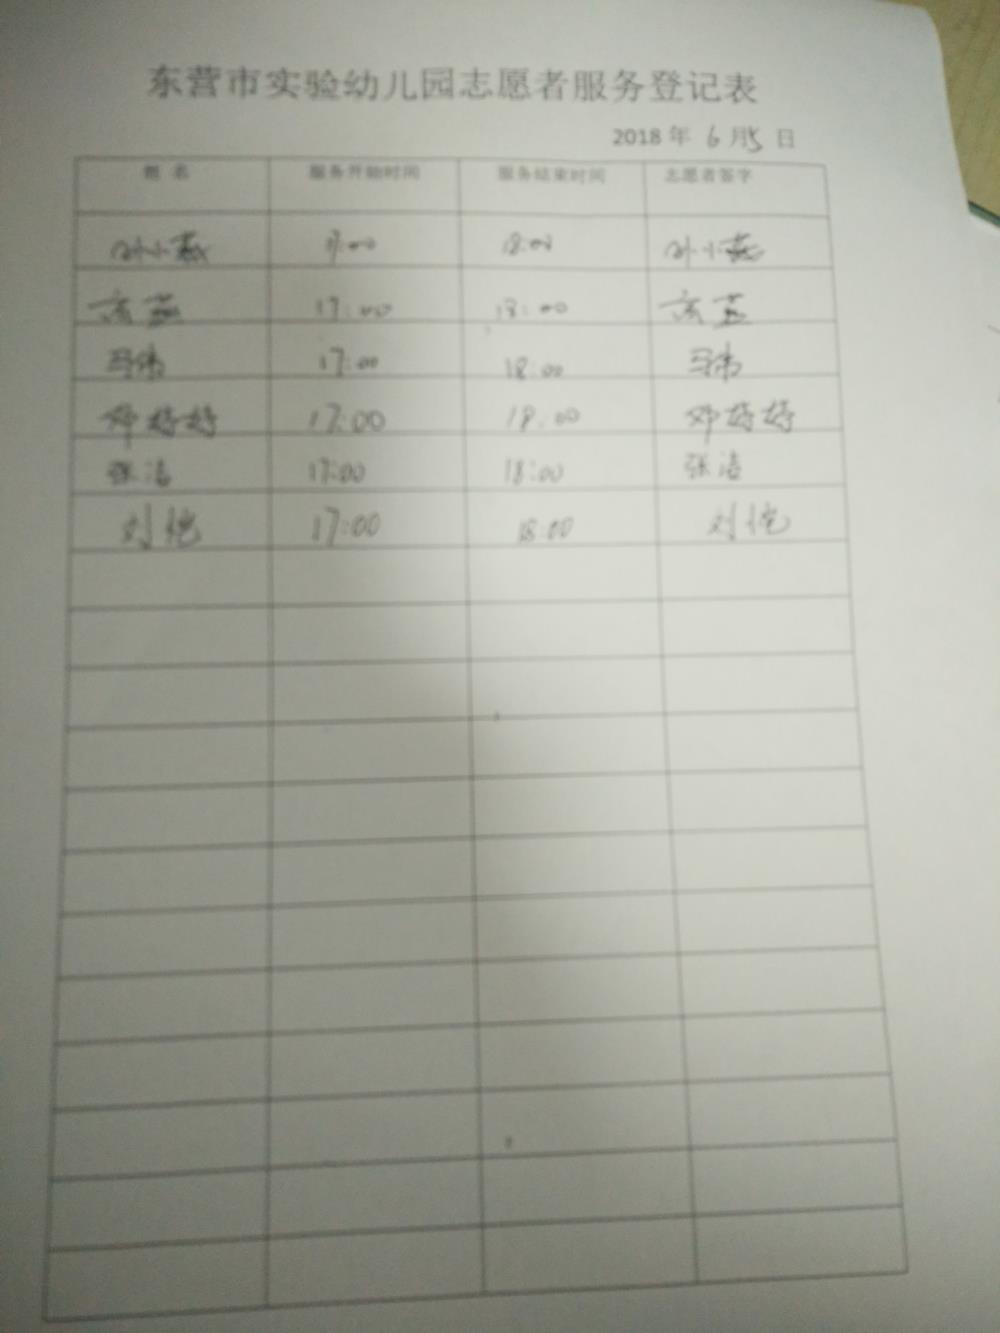 东营市实验幼儿园志愿者服务登记表
2018 年 6 月 5 日
姓 名 服务开始时间 服务结束时间 志愿者签字
孙小燕 17:00 18:00 孙小燕
17:00 18:00
马伟 17:00 18:00 马伟
邓婷婷 17:00 18:00 邓婷婷
张洁 17:00 18:00 张洁
刘恺 17:00 18:00 刘恺